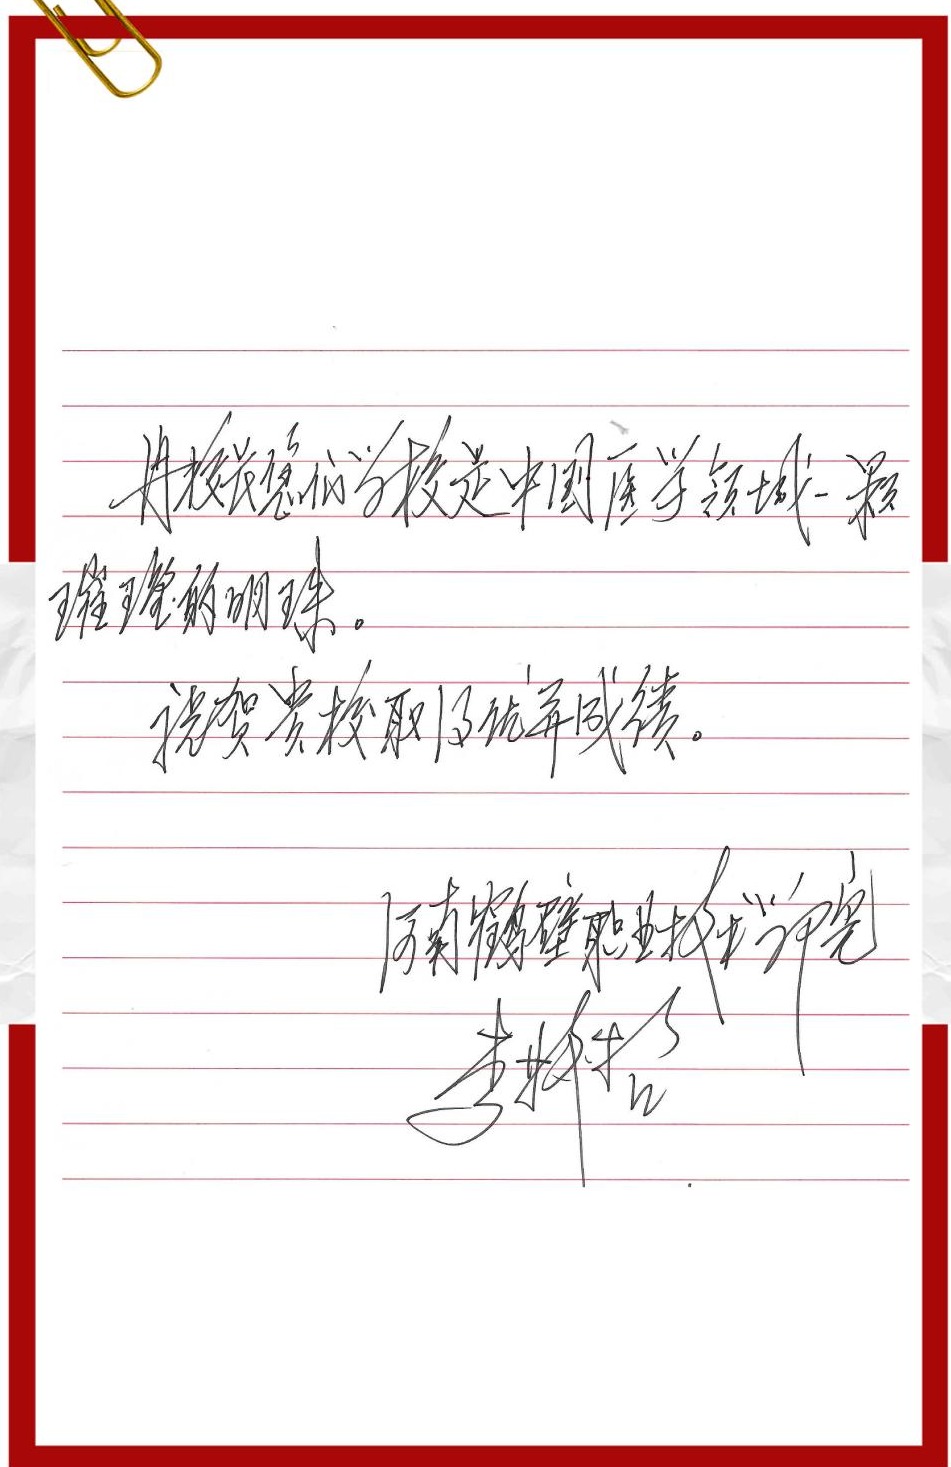 校长您们学校是中国医学领域一颗
璀璨的明珠。
祝贺贵校取得优异成绩。
河南鹤壁职业技术学院
李